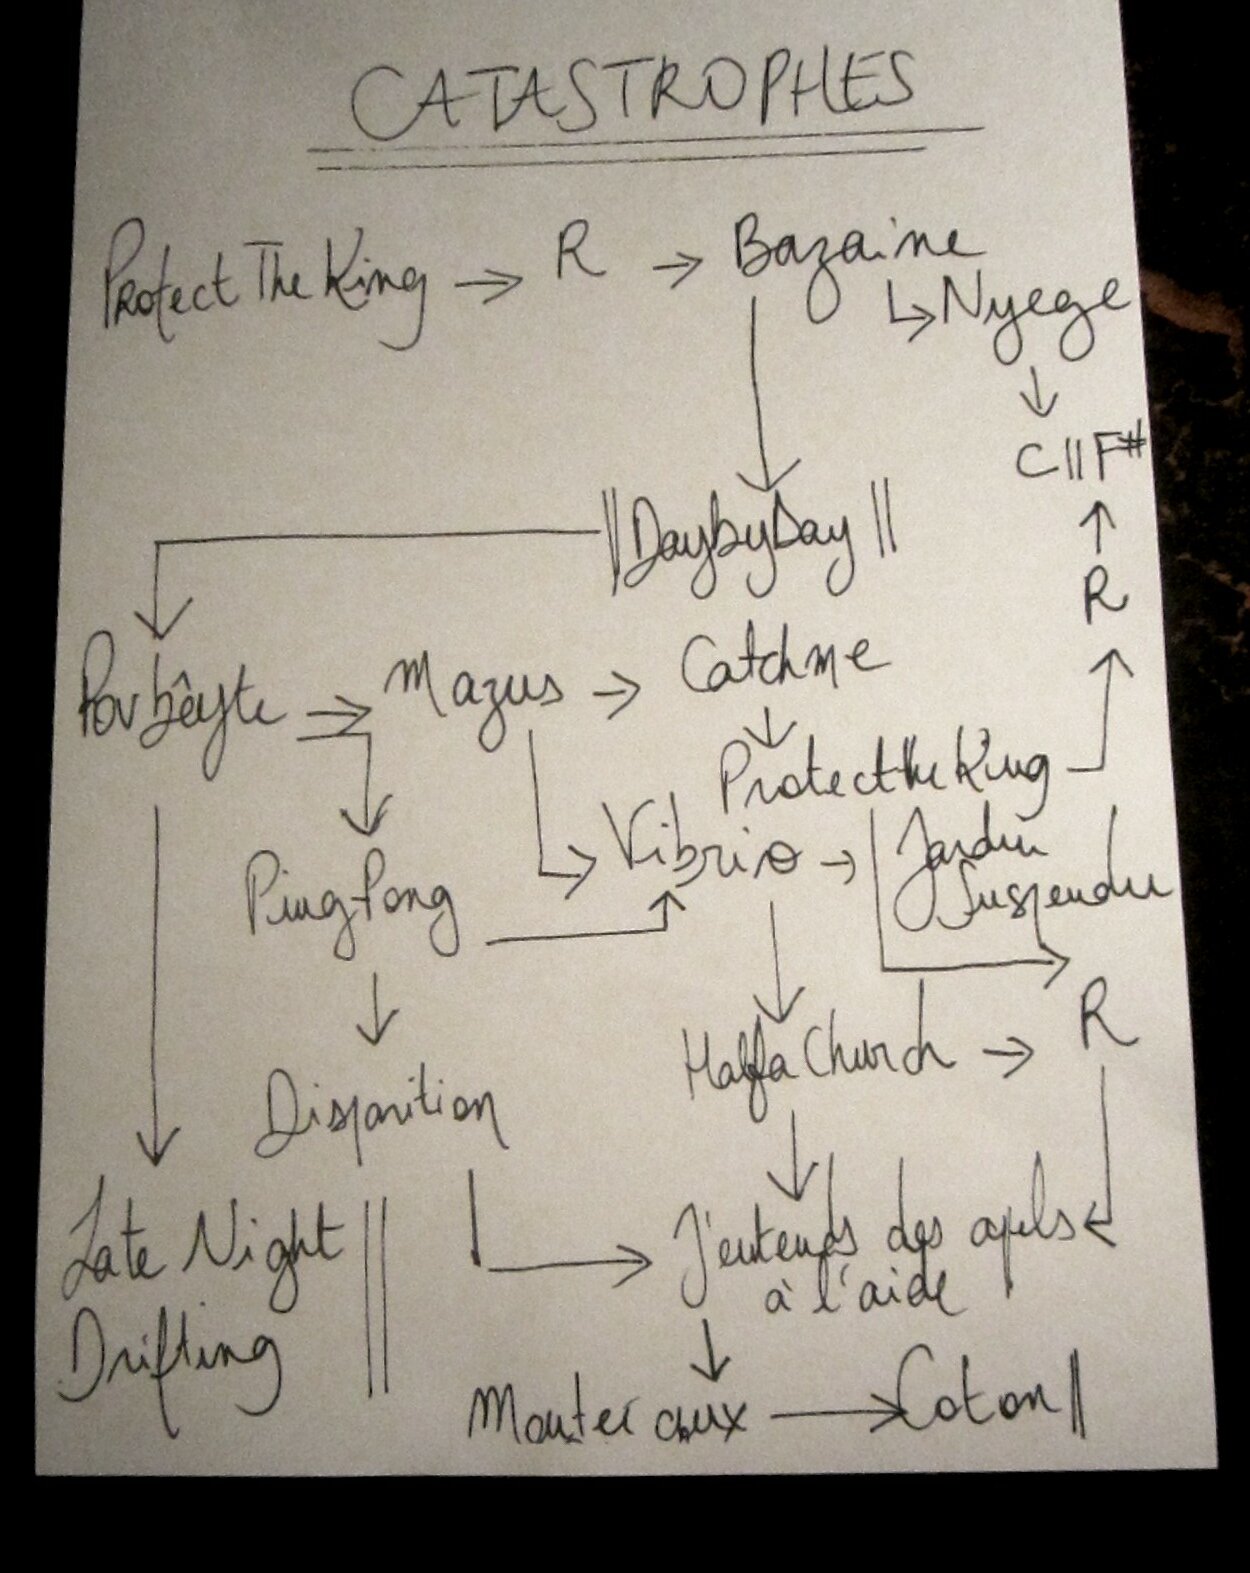 CATASTROPHES
Protect The King → R → Bazaine
↳ Nyege
↓
C || F#
|| Day by Day ||
R
Pov bêyte → Mazus → Catch me
Protect the King
Vibrio → Jardin
Suspendu
Ping-Pong
R
Half a Church →
Disparition
Late Night || J'entends des apels
à l'aide
Drifting
Manteraux → Coton ||